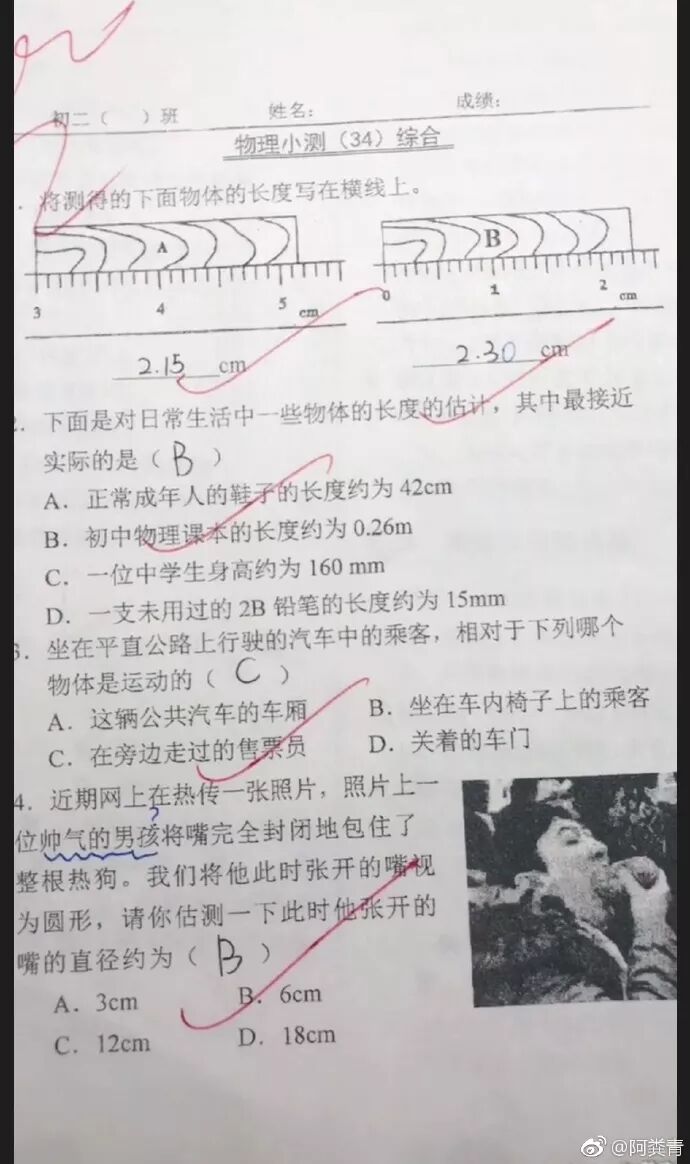 初二（ ）班 姓名： 成绩：
物理小测（34）综合
. 将测得的下面物体的长度写在横线上。
A B
3 4 5 cm 0 1 2 cm
2.15 cm 2.30 cm
. 下面是对日常生活中一些物体的长度的估计，其中最接近
实际的是（ B ）
A. 正常成年人的鞋子的长度约为 42cm
B. 初中物理课本的长度约为 0.26m
C. 一位中学生身高约为 160 mm
D. 一支未用过的 2B 铅笔的长度约为 15mm
3. 坐在平直公路上行驶的汽车中的乘客，相对于下列哪个
物体是运动的（ C ）
A. 这辆公共汽车的车厢 B. 坐在车内椅子上的乘客
C. 在旁边走过的售票员 D. 关着的车门
4. 近期网上在热传一张照片，照片上一
?
位帅气的男孩将嘴完全封闭地包住了
整根热狗。我们将他此时张开的嘴视
为圆形，请你估测一下此时他张开的
嘴的直径约为（ B ）
A. 3cm B. 6cm
C. 12cm D. 18cm
@阿粪青